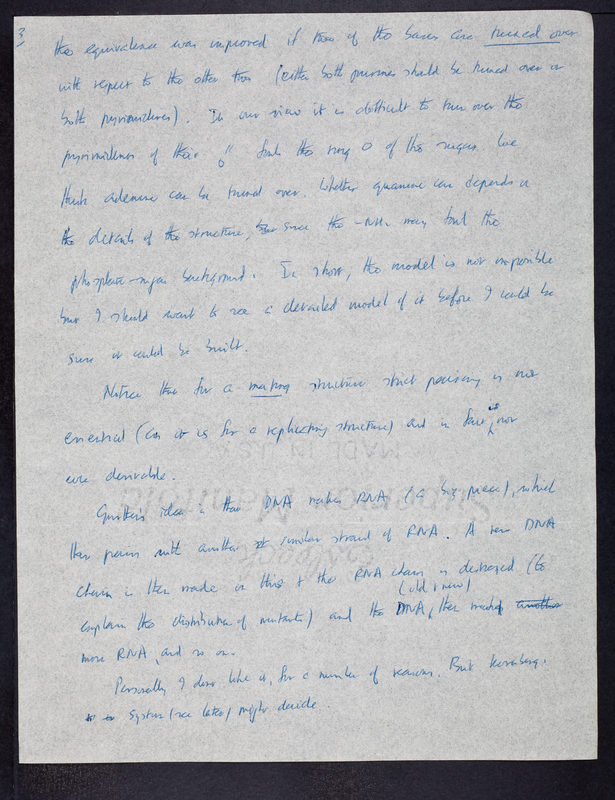 3
the equivalence was improved if two of the bases are turned over
with respect to the other two (either both purines should be turned over or
both pyrimidines). In our view it is difficult to turn over the
pyrimidines if their O fouls the ring O of the sugar. We
think adenine can be turned over. Whether guanine can depends on
the details of the structure, since the -NH2 may foul the
phosphate-sugar background. In short, the model is not impossible
but I should want to see a detailed model of it before I could be
sure it could be built.
Notice that for a making structure strict pairing is not
essential (as it is for a replicating structure) and in fact is not
even desirable.
idea is that DNA makes RNA (a big piece), which
then pairs with another similar strand of RNA. A new DNA
chain is then made on this & the RNA chain is destroyed (to
explain the distribution of mutants) and the DNA (old & new) then makes
more RNA, and so on.
Personally I don't like it, for a number of reasons. But Kornberg's
system (see later) might decide.